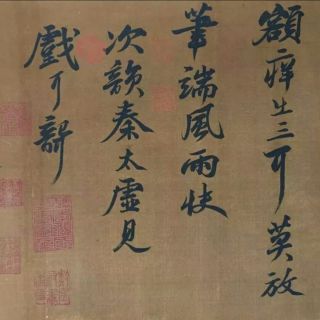 額痒出三耳莫放
筆端風雨快
次韻秦太虛見
戲耳聾